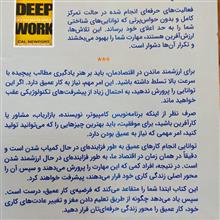 DEEP
WORK
CAL NEWPORT
فعالیت‌های حرفه‌ای انجام شده در حالت تمرکز
کامل و بدون حواس‌پرتی که توانایی‌های شناختی
شما را به حد اعلای خود برساند. این تلاش‌ها،
ارزش‌آفرین هستند، مهارت شما را بهبود می‌بخشند
و تکرار آن‌ها دشوار است.
***
برای ارزشمند ماندن در اقتصادمان، باید بر هنر یادگیری مطالب پیچیده با
سرعت بالا تسلط داشته باشید. این امر مهم، نیاز به کار عمیق دارد. اگر این
توانایی را پرورش ندهید، احتمال زیاد از پیشرفت‌های تکنولوژیکی عقب
خواهید ماند.
صرف نظر از اینکه برنامه‌نویس کامپیوتر، نویسنده، بازاریاب، مشاور یا
کارآفرین باشید، برای موفقیت، باید بهترین چیزهایی را که می‌توانید تولید
کنید، امر مهمی که نیاز به عمیق بودن دارد.
توانایی انجام کارهای عمیق به طور فزاینده‌ای در حال کمیاب شدن است و
دقیقاً در همان زمان در اقتصاد ما، به طور فزاینده‌ای در حال ارزشمند شدن
است. در نتیجه، افراد کمی که این مهارت را پرورش می‌دهند و سپس آن را
محور اصلی زندگی کاری خود قرار می‌دهند، پیشرفت خواهند کرد.
این کتاب ابتدا شما را متقاعد می‌کند که فرضیه‌ی کار عمیق، درست است.
سپس یاد می‌دهد چگونه از طریق تعلیم دادن مغز و تغییر عادت‌های کاری
خود، کار عمیق را محور زندگی حرفه‌ای‌تان قرار دهید.